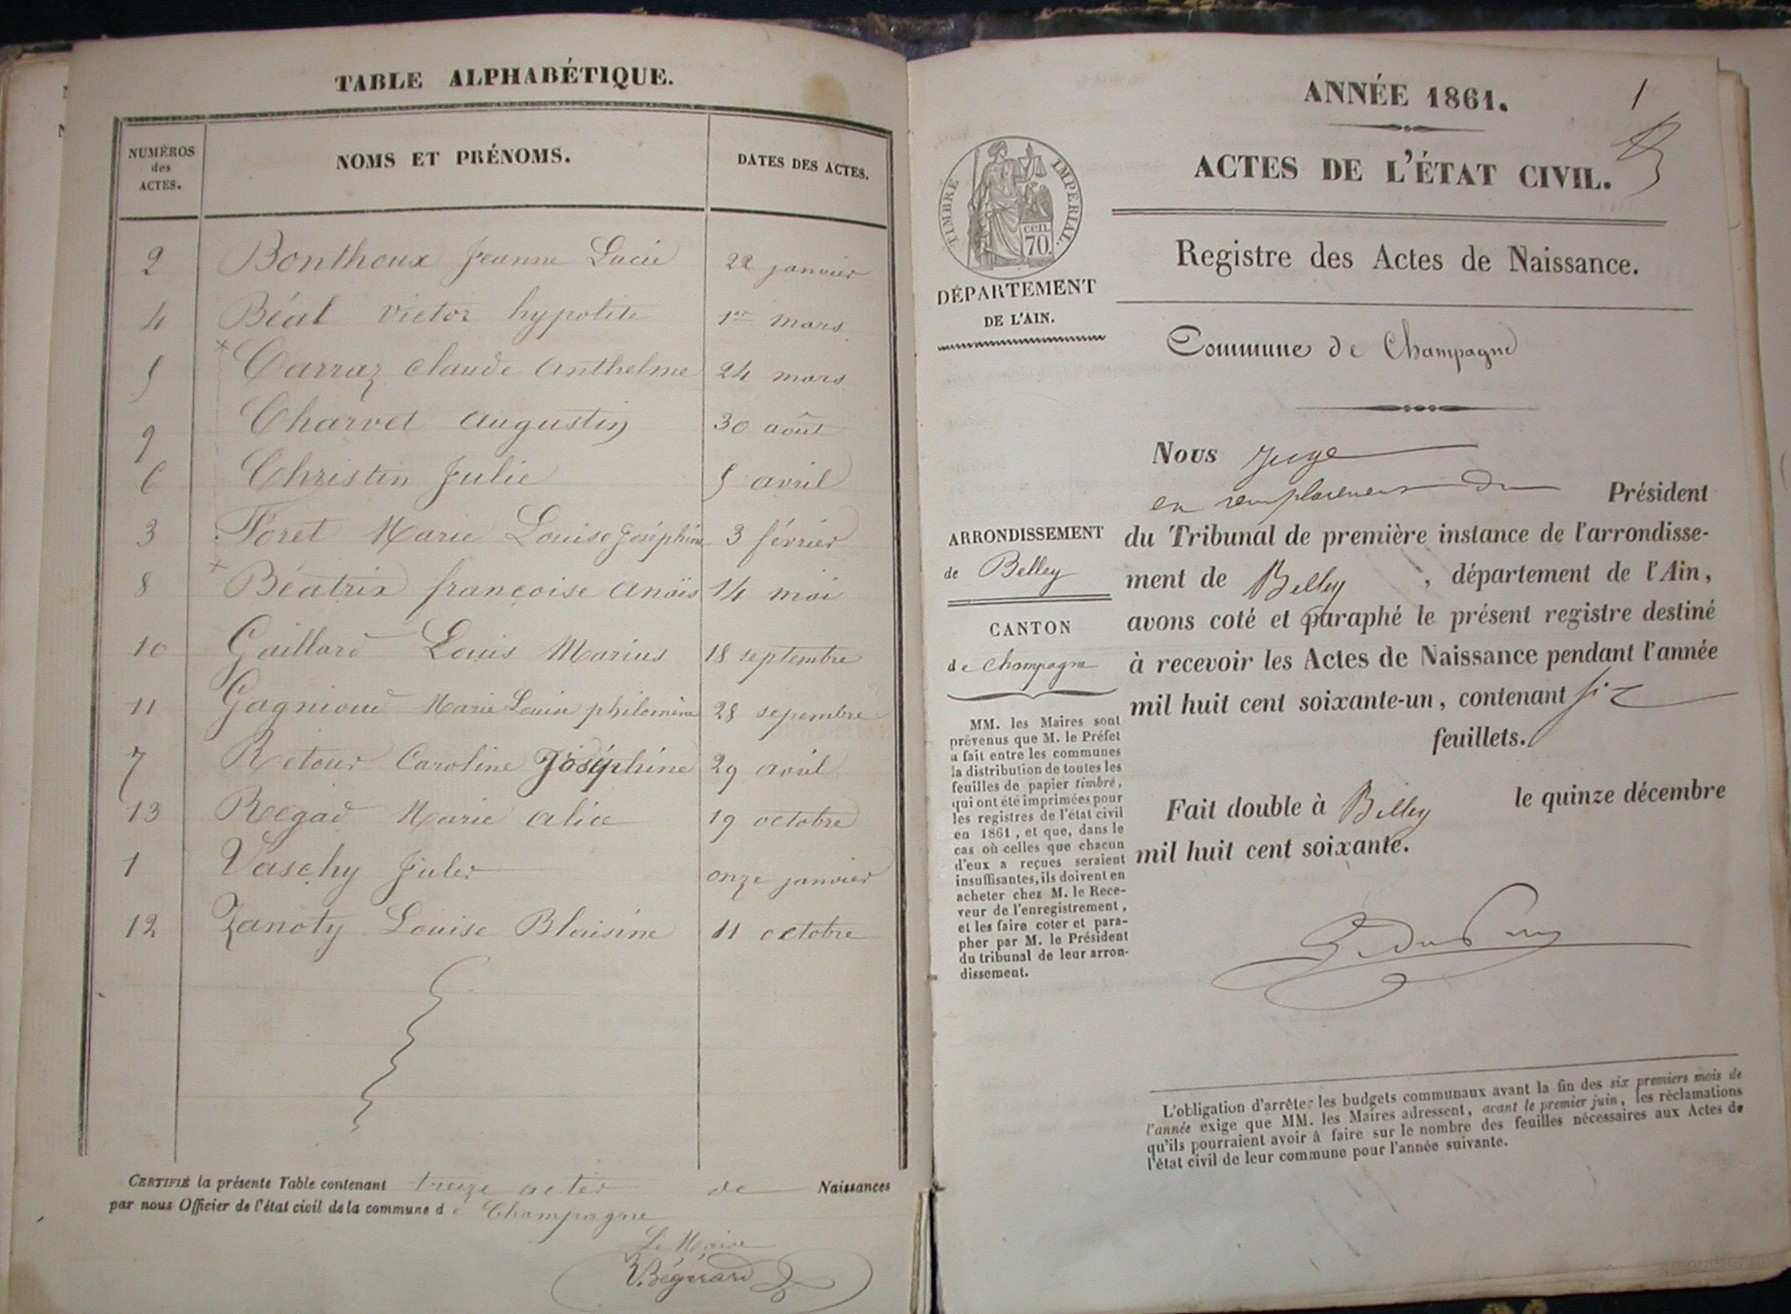 TABLE ALPHABÉTIQUE.
NUMÉROS
des
ACTES.
NOMS ET PRÉNOMS.
DATES DES ACTES.
2 Bonthoux Jeanne Lucie 22 janvier
4 Béal victor hypolite 1er mars
5 Carraz claude anthelme 24 mars
9 Charvet augustin 30 août
6 Christin Julie 5 avril
3 Foret Marie Louise Joséphine 3 février
8 Béatrix françoise anaïs 14 mai
10 Gaillard Louis Marius 18 septembre
11 Gagnioud Marie Louise philomène 28 sepembre
7 Retour Caroline Joséphine 29 avril
13 Regad Marie alice 19 octobre
1 Vaschy Jules onze janvier
12 Zanoty Louise Blaisine 11 octobre
CERTIFIÉ la présente Table contenant treize actes de Naissances
par nous Officier de l'état civil de la commune de Champagne
Le Maire
Bégérard
ANNÉE 1861.
1
ACTES DE L'ÉTAT CIVIL.
TIMBRE IMPÉRIAL.
cen.
70
Registre des Actes de Naissance.
DÉPARTEMENT
DE L'AIN.
Commune de Champagne
Nous Juge
en remplacement du Président
ARRONDISSEMENT
de Belley
CANTON
de champagne
du Tribunal de première instance de l'arrondisse-
ment de Belley, département de l'Ain,
avons coté et paraphé le présent registre destiné
à recevoir les Actes de Naissance pendant l'année
mil huit cent soixante-un, contenant six
feuillets.
Fait double à Belley le quinze décembre
mil huit cent soixante.
MM. les Maires sont
prévenus que M. le Préfet
a fait entre les communes
la distribution de toutes les
feuilles de papier timbré,
qui ont été imprimées pour
les registres de l'état civil
en 1861, et que, dans le
cas où celles que chacun
d'eux a reçues seraient
insuffisantes, ils doivent en
acheter chez M. le Rece-
veur de l'enregistrement,
et les faire coter et para-
pher par M. le Président
du tribunal de leur arron-
dissement.
L'obligation d'arrêter les budgets communaux avant la fin des six premiers mois de
l'année exige que MM. les Maires adressent, avant le premier juin, les réclamations
qu'ils pourraient avoir à faire sur le nombre des feuilles nécessaires aux Actes de
l'état civil de leur commune pour l'année suivante.